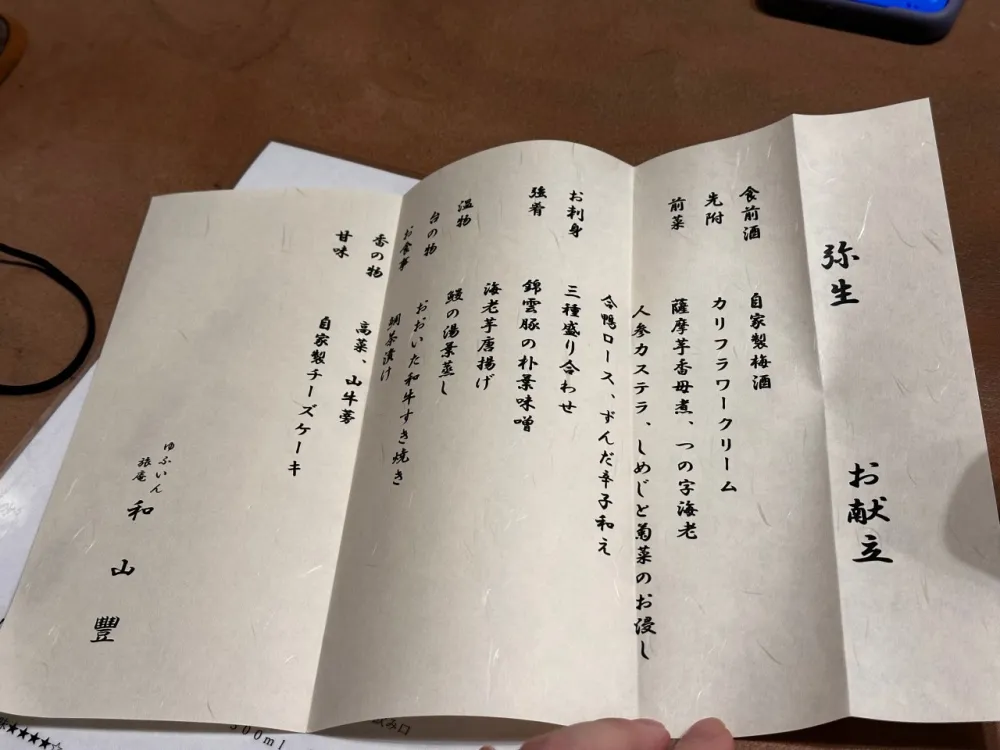 弥生 お献立
食前酒 自家製梅酒
先附 カリフラワークリーム
前菜 薩摩芋香母煮、つの字海老
人参カステラ、しめじと菊菜のお浸し
合鴨ロース、ずんだ辛子和え
お刺身 三種盛り合わせ
強肴 錦雲豚の朴葉味噌
海老芋唐揚げ
温物 鰻の湯葉蒸し
台の物 おおいた和牛すき焼き
お食事 鯛茶漬け
香の物 高菜、山牛蒡
甘味 自家製チーズケーキ
ゆふいん
旅庵
和山豐
★★★★☆
300ml
飲み口